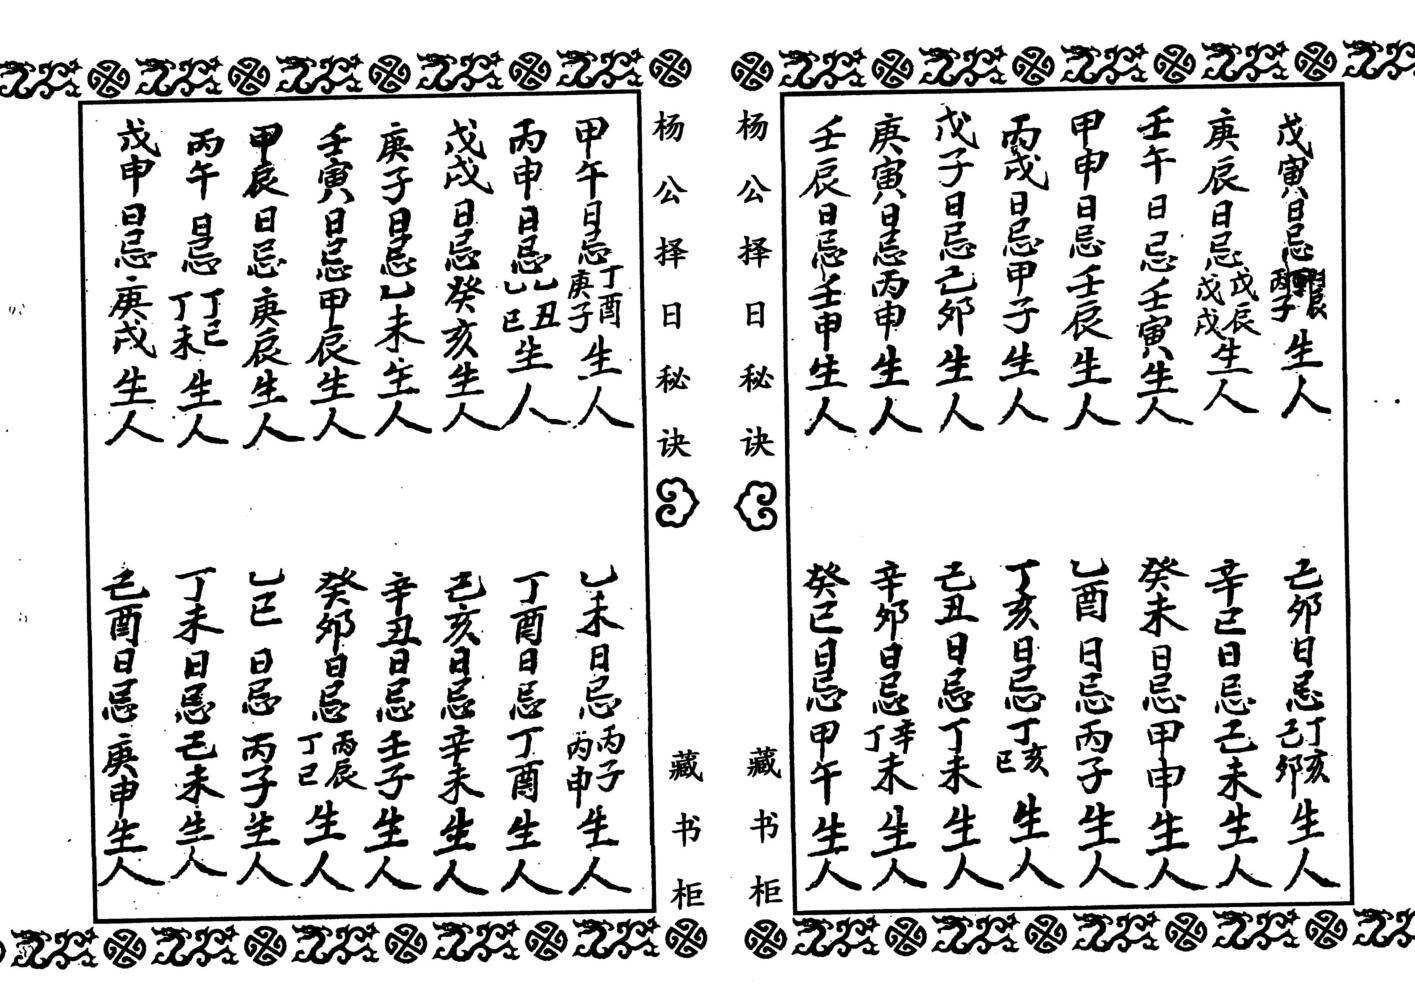 戊寅日忌丙子庚辰生人
己卯日忌丁亥己卯生人
庚辰日忌戊辰戊戌生人
辛巳日忌己未生人
壬午日忌壬寅生人
癸未日忌甲申生人
甲申日忌壬辰生人
乙酉日忌丙子生人
丙戌日忌甲子生人
丁亥日忌丁亥丁巳生人
戊子日忌己卯生人
己丑日忌丁未生人
庚寅日忌丙申生人
辛卯日忌辛未丁未生人
壬辰日忌壬申生人
癸巳日忌甲午生人
杨公择日秘诀
藏书柜
杨公择日秘诀
藏书柜
甲午日忌丁酉庚子生人
乙未日忌丙子丙申生人
丙申日忌乙丑乙巳生人
丁酉日忌丁酉生人
戊戌日忌癸亥生人
己亥日忌辛未生人
庚子日忌乙未生人
辛丑日忌壬子生人
壬寅日忌甲辰生人
癸卯日忌丙辰丁巳生人
甲辰日忌庚辰生人
乙巳日忌丙子生人
丙午日忌丁巳丁未生人
丁未日忌己未生人
戊申日忌庚戌生人
己酉日忌庚申生人